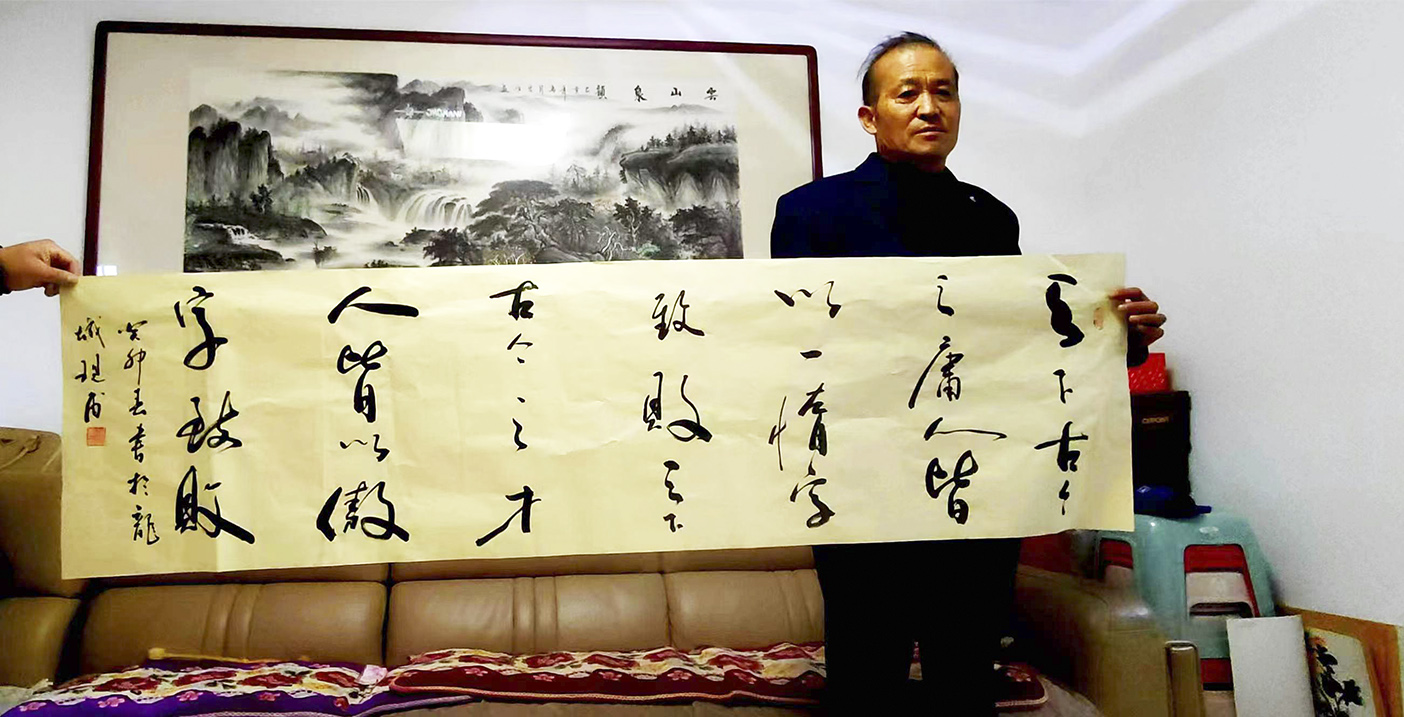 天下古今
之庸人皆
以一惰字
致敗天下
古今之才
人皆以傲
字致敗
癸卯春書於龍
城
山泉韻